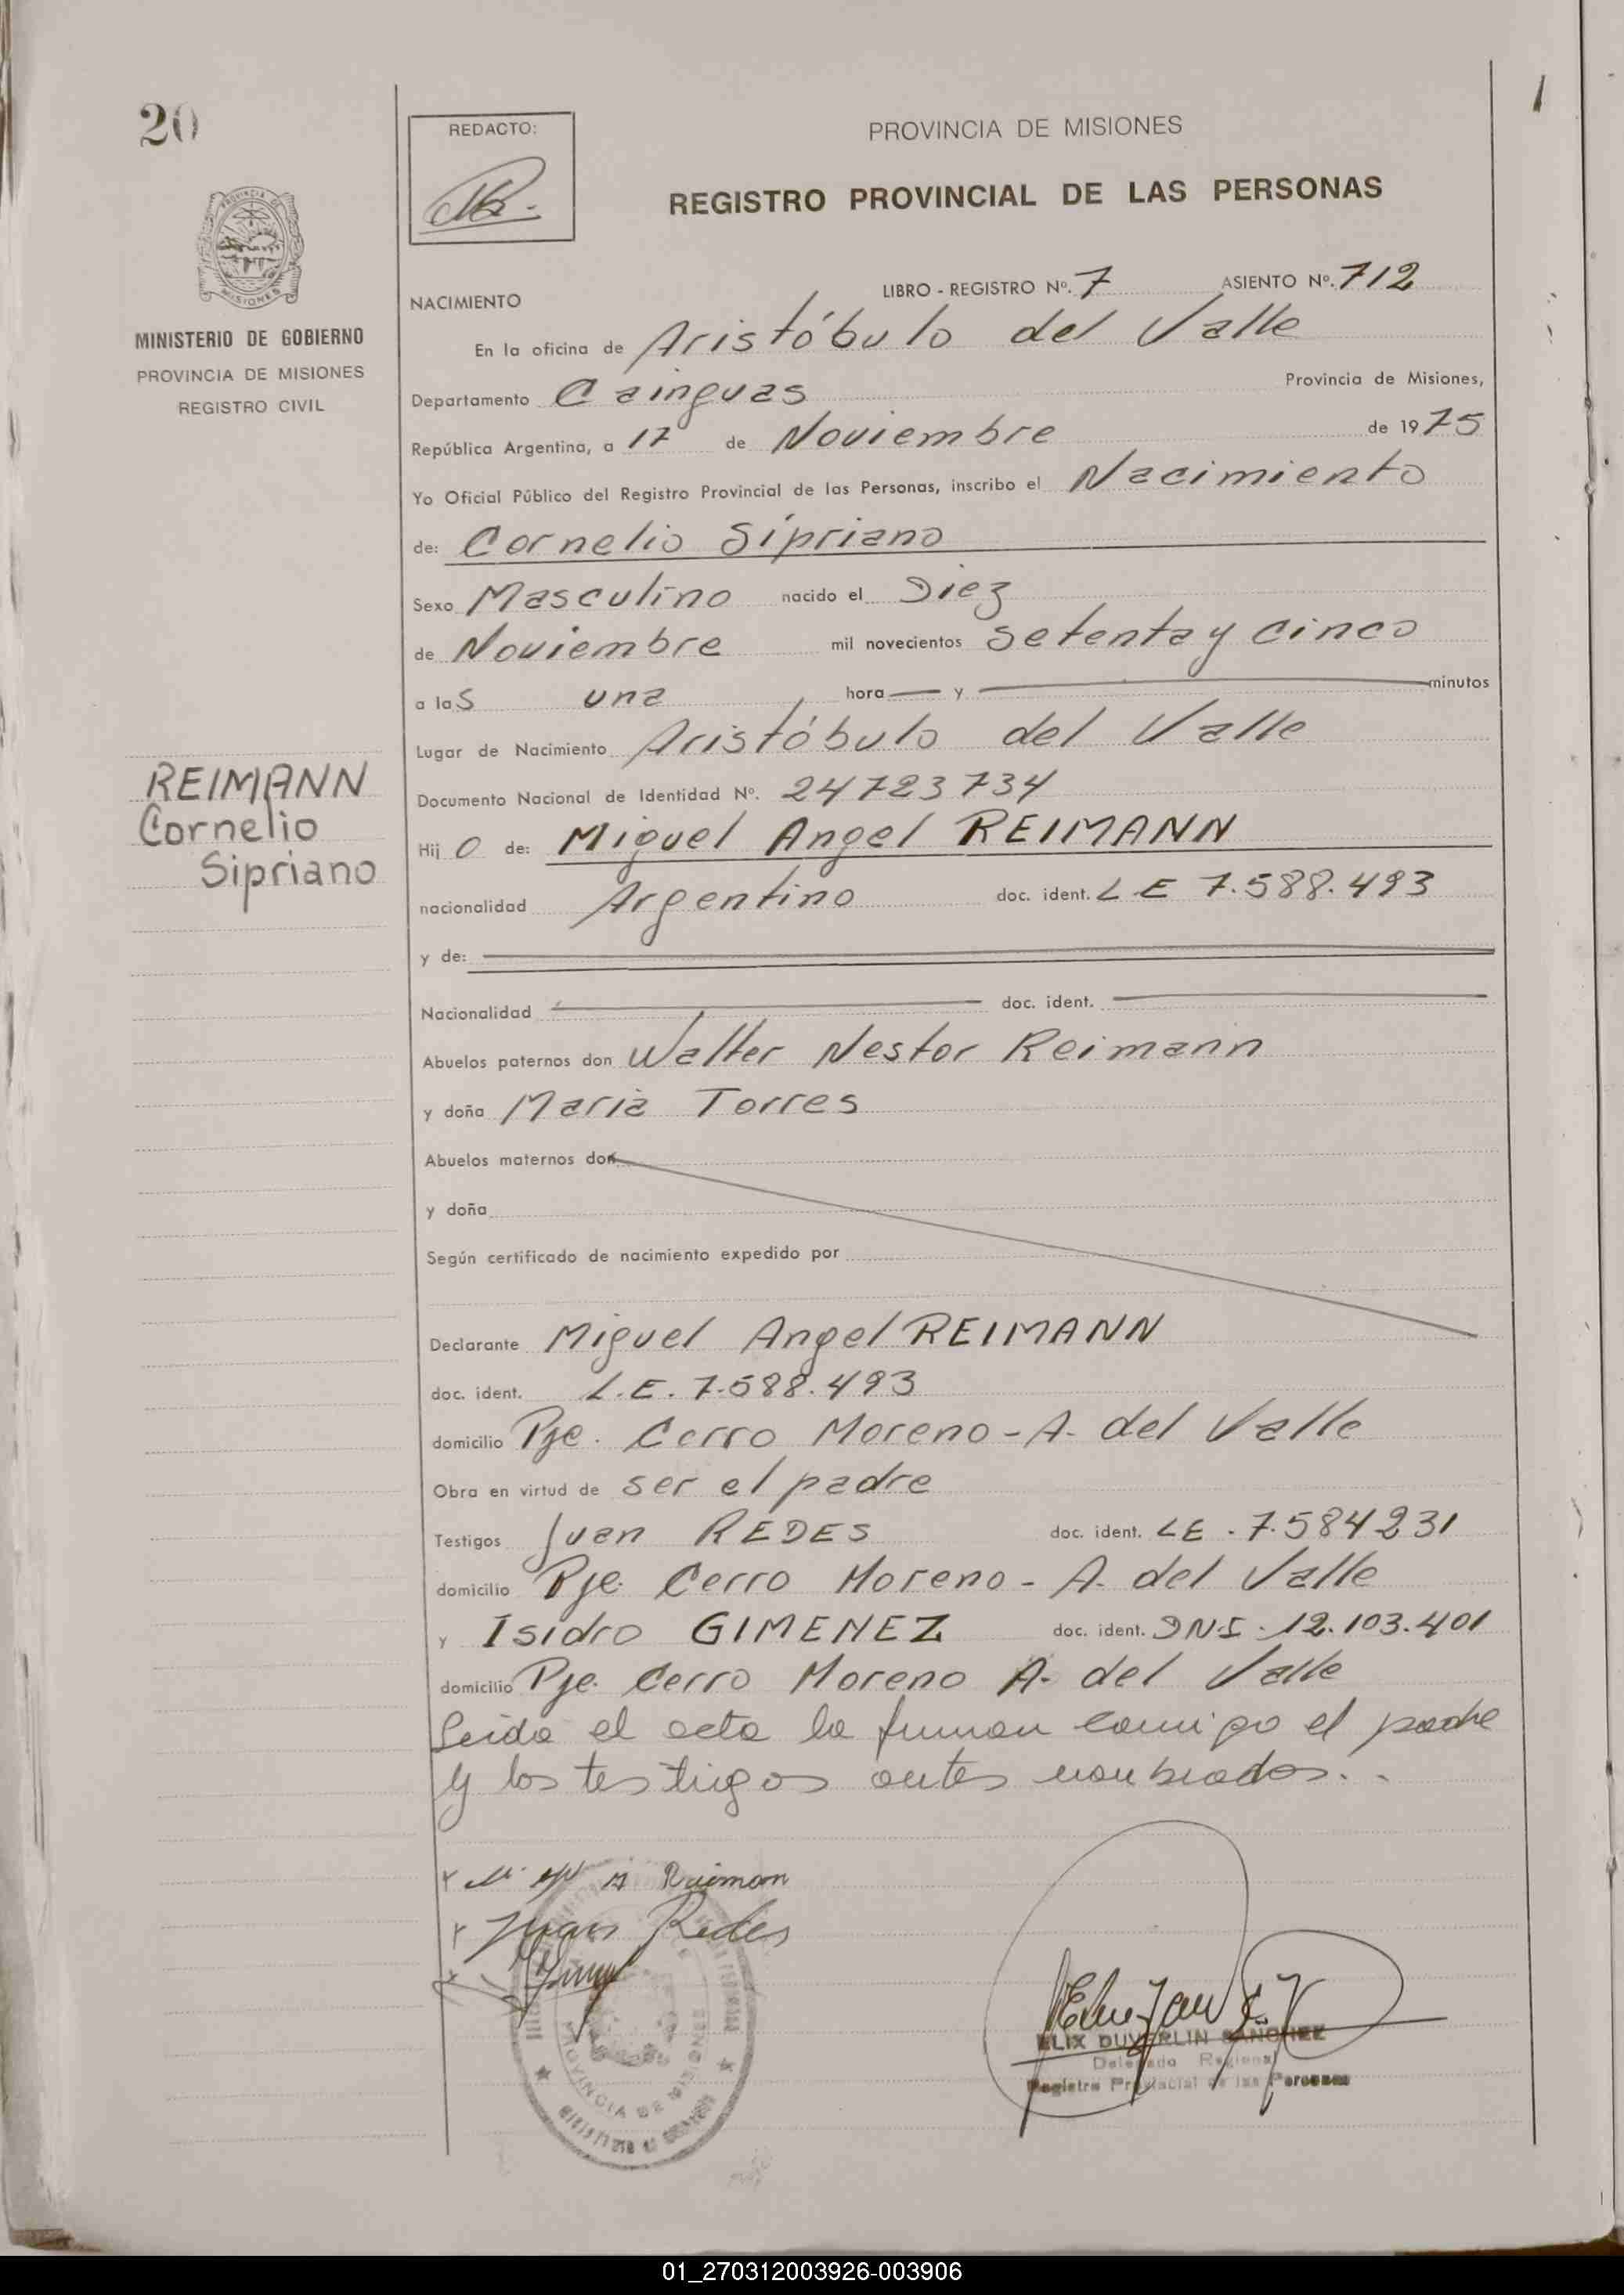 20
1
REDACTO:
PROVINCIA DE MISIONES
REGISTRO PROVINCIAL DE LAS PERSONAS
MISIONES
MINISTERIO DE GOBIERNO
PROVINCIA DE MISIONES
REGISTRO CIVIL
NACIMIENTO LIBRO - REGISTRO Nº. 7 ASIENTO Nº. 712
En la oficina de Aristóbulo del Valle
Departamento Cainguas Provincia de Misiones,
República Argentina, a 17 de Noviembre de 1975
Yo Oficial Público del Registro Provincial de las Personas, inscribo el Nacimiento
de: Cornelio Sipriano
Sexo Masculino nacido el Diez
de Noviembre mil novecientos setenta y cinco
a las una hora — y — minutos
Lugar de Nacimiento Aristóbulo del Valle
REIMANN
Cornelio
Sipriano
Documento Nacional de Identidad Nº. 24723734
Hijo de: Miguel Angel REIMANN
nacionalidad Argentino doc. ident. L E 7.588.493
y de:
Nacionalidad doc. ident.
Abuelos paternos don Walter Nestor Reimann
y doña Maria Torres
Abuelos maternos don
y doña
Según certificado de nacimiento expedido por
Declarante Miguel Angel REIMANN
doc. ident. L.E. 7.588.493
domicilio Pje. Cerro Moreno - A. del Valle
Obra en virtud de ser el padre
Testigos Juan REDES doc. ident. LE. 7.584231
domicilio Pje. Cerro Moreno - A. del Valle
y Isidro GIMENEZ doc. ident. DNI. 12.103.401
domicilio Pje. Cerro Moreno A. del Valle
Leida el acta la firman conmigo el padre
y los testigos antes nombrados..
A Reiman
Juan Redes
PROVINCIA DE MISIONES
ELIX DUVERLIN SANCHEZ
Delegado Regional
Registro Provincial de las Personas
01_270312003926-003906